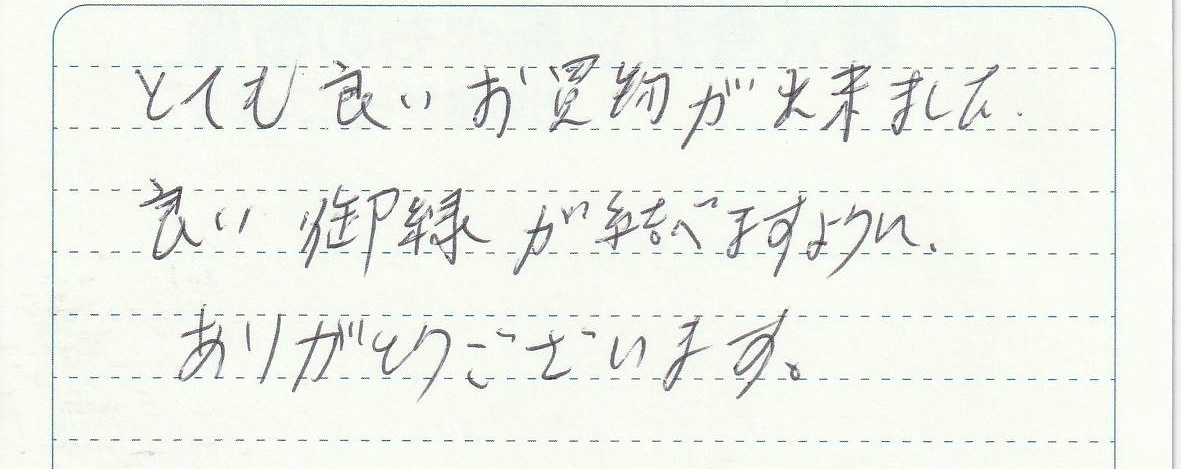 とても良いお買物が出来ました.
良い御縁が結べますように、
ありがとうございます。